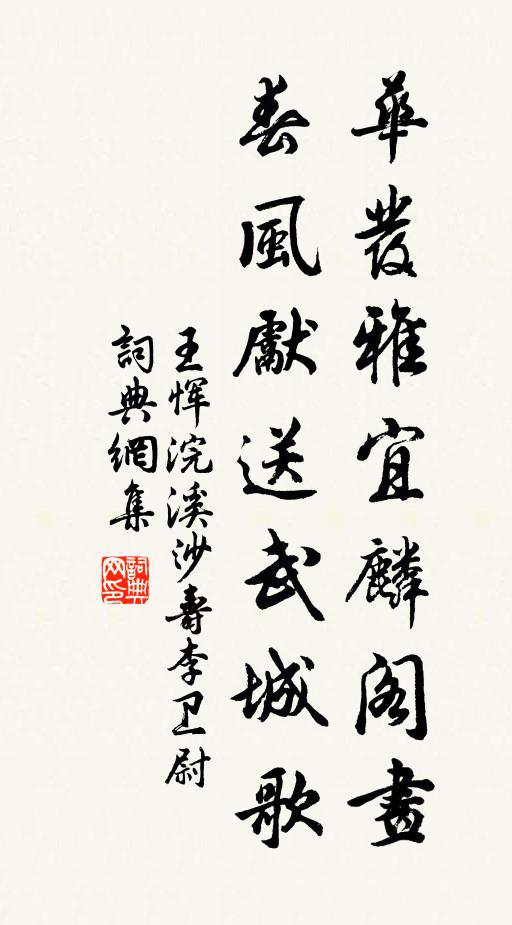 華發雅宜麟閣畫
春風獻送武城歌
王恽浣溪沙壽李卫尉
詞典網集
詞典网印